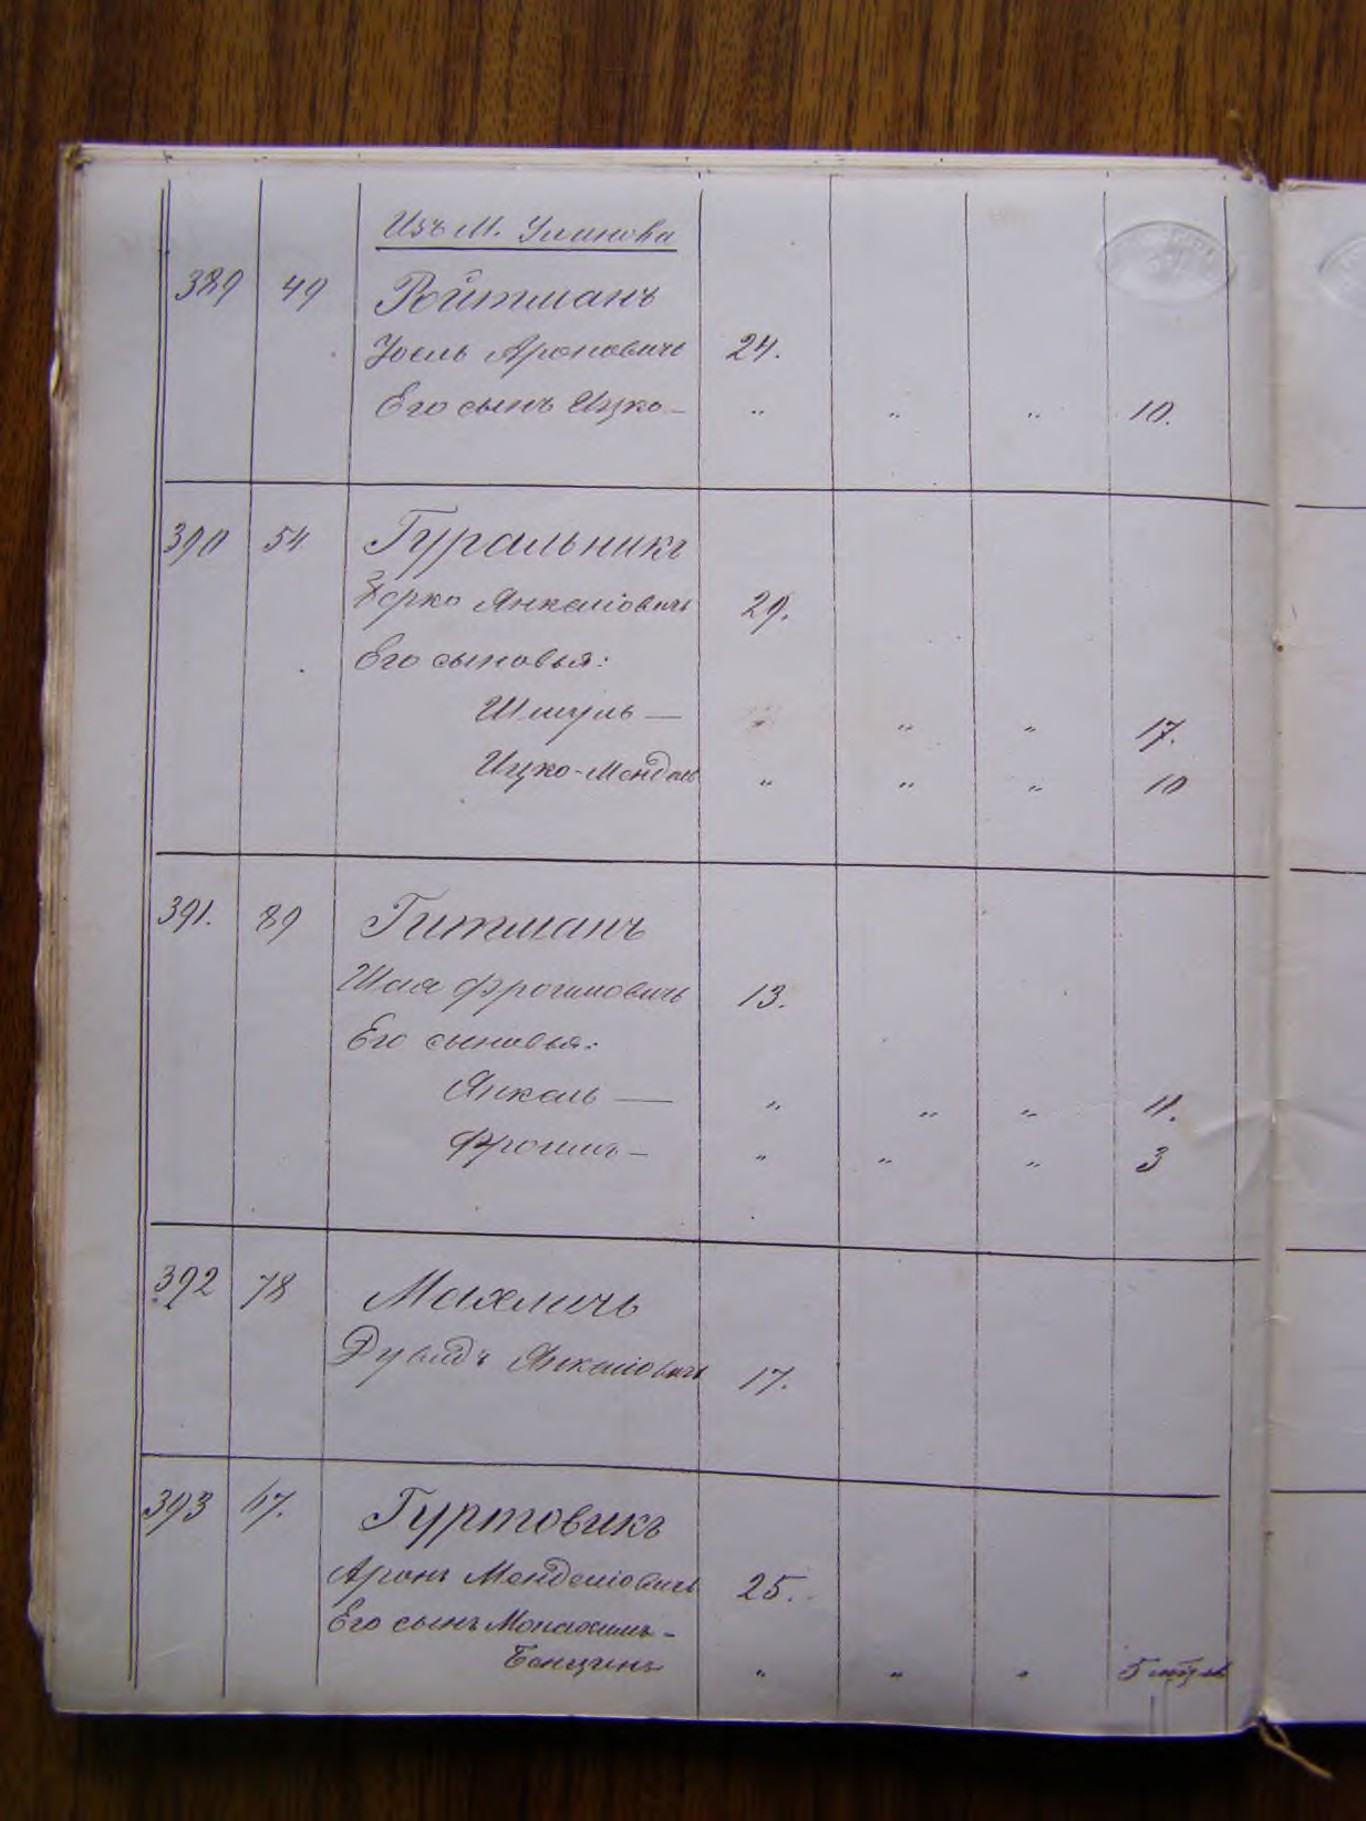 Изъ М. Уланова
389 49 Ройтманъ
Іосль Ароновичъ 24.
Его сынъ Ицко — „ „ „ 10.
390 54 Гуральникъ
Берко Янкеліовичъ 29.
Его сыновья:
Шмуль — „ „ „ 17.
Ицко-Мендель „ „ „ 10
391. 89 Гитманъ
Шая Фроимовичъ 13.
Его сыновья:
Янкель — „ „ „ 11.
Фроимъ — „ „ „ 3
392 78 Махличъ
Дувидъ Янкеліовичъ 17.
393 67. Гуртовикъ
Аронъ Менделіовичъ 25.
Его сынъ Монахимъ-
Бенціенъ „ „ „ 5